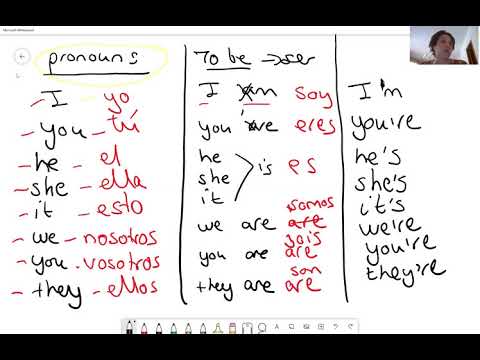 Microsoft Whiteboard
pronouns
- I - yo
- you - tú
- he - el
- she - ella
- it - esto
- we - nosotros
- you . vosotros
- they - ellos
To be → ser
I am soy
you are eres
he
she is es
it
somos
we are are
sois
you are are
son
they are are
I'm
you're
he's
she's
it's
we're
you're
they're